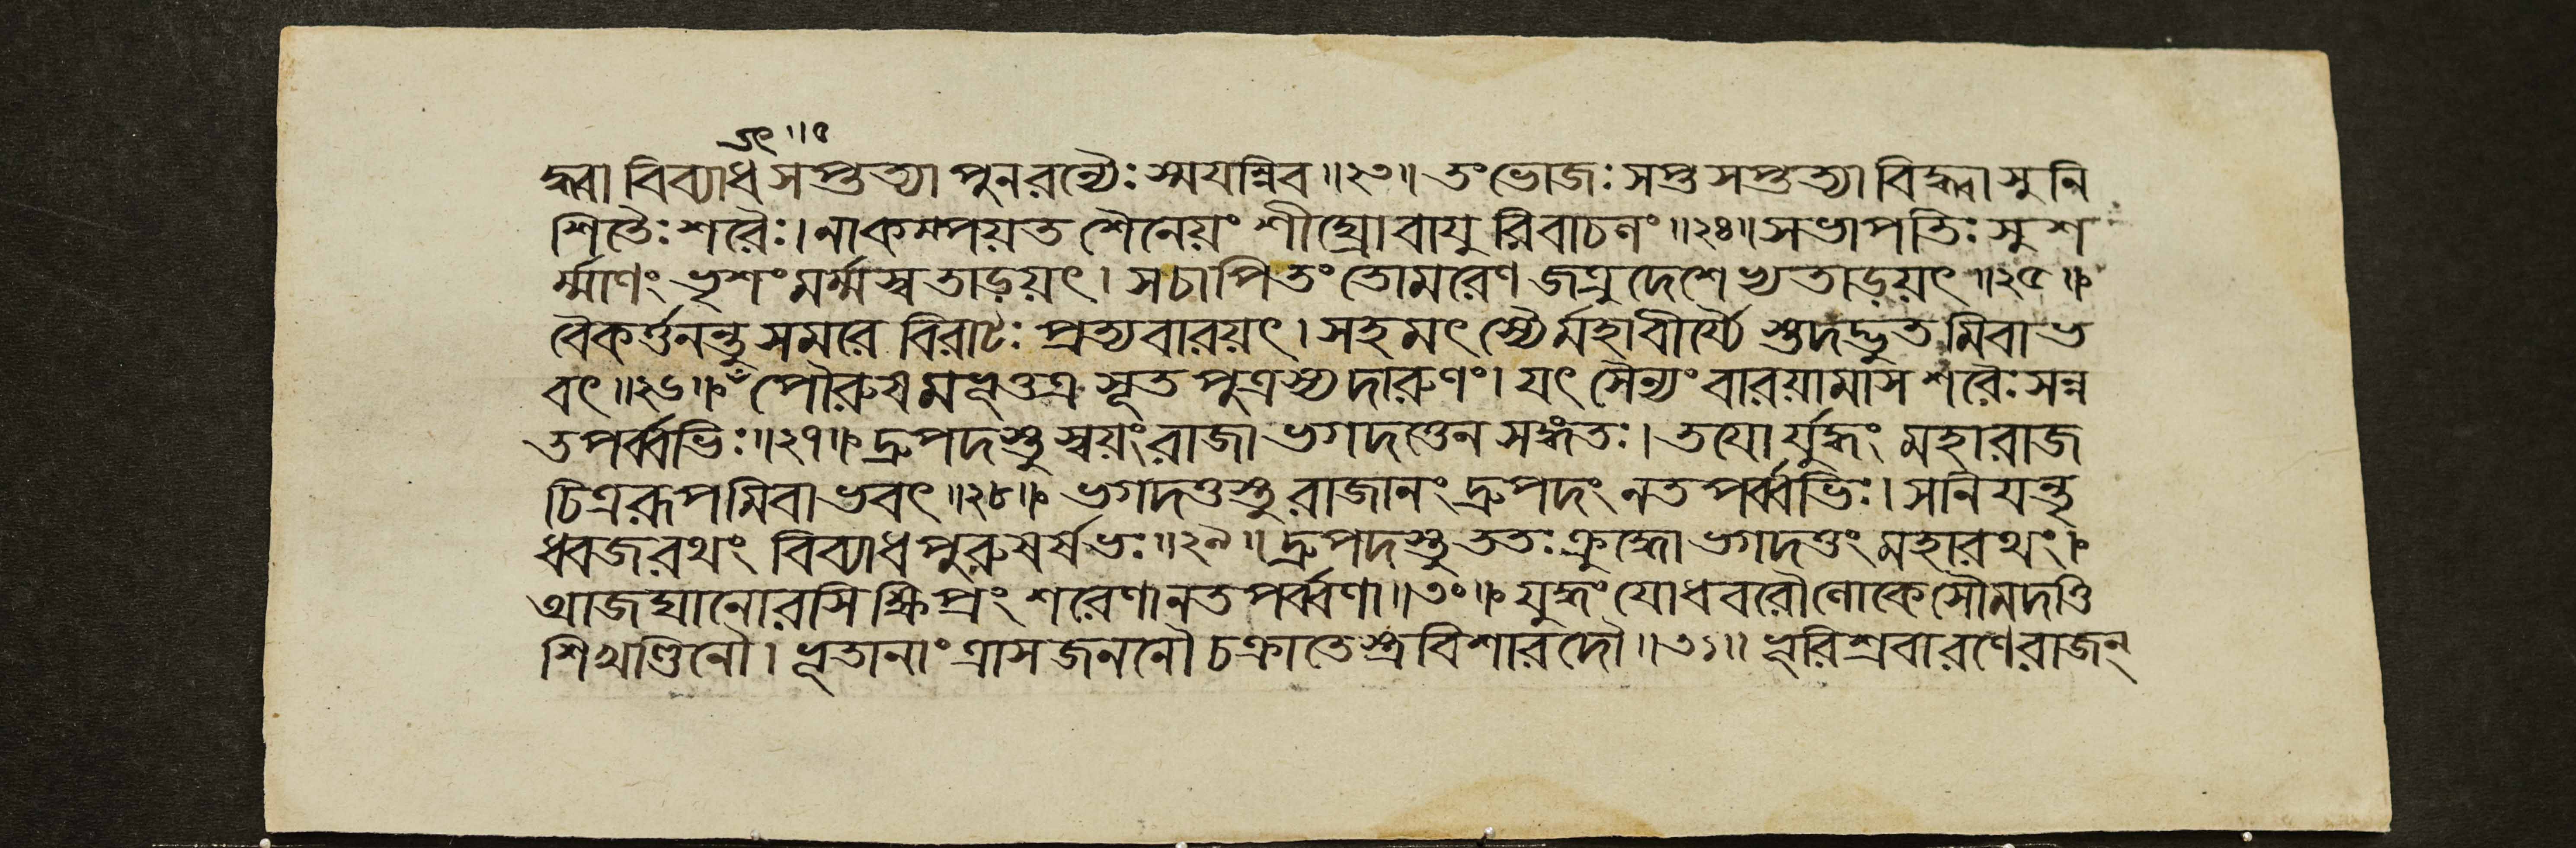 তং ॥ ৫
দ্ধ্বা বিব্যাধ সপ্তত্যা পুনরন্যৈঃ স্ময়ন্নিব ॥ ২৩ ॥ তং ভোজঃ সপ্তসপ্তত্যা বিদ্ধ্বা সুনি
শিতৈঃ শরৈঃ । নাকম্পয়ত শৈনেয়ং শীঘ্রো বায়ুরিবাচলং ॥ ২৪ ॥ সভাপতিঃ সুশ
র্ম্মাণং ভৃশং মর্ম্মস্বতাড়য়ৎ । সচাপি তং তোমরেণ জত্রুদেশেভ্যতাড়য়ৎ ॥ ২৫ ॥
বৈকর্ত্তনন্তু সমরে বিরাটঃ প্রত্যবারয়ৎ । সহ মৎস্যৈর্মহাবীর্য্যৈস্তদদ্ভুতমিবাভ
বৎ ॥ ২৬ ॥ পৌরুষমভূত্তত্র সূতপুত্রস্য দারুণং । যৎ সৈন্যং বারয়ামাস শরৈঃ সন্ন
তপর্ব্বভিঃ ॥ ২৭ ॥ দ্রুপদস্তু স্বয়ং রাজা ভগদত্তেন সঙ্গতঃ । তয়োর্যুদ্ধং মহারাজ
চিত্ররূপমিবাভবৎ ॥ ২৮ ॥ ভগদত্তস্তু রাজানং দ্রুপদং নতপর্ব্বভিঃ । সনিযন্তৃ
ধ্বজরথং বিব্যাধ পুরুষর্ষভঃ ॥ ২৯ ॥ দ্রুপদস্তু ততঃ ক্রুদ্ধো ভগদত্তং মহারথং ।
আজঘানোরসি ক্ষিপ্রং শরেণানতপর্ব্বণা ॥ ৩০ ॥ যুদ্ধং যোধবরৌ লোকে সৌমদত্তি
শিখণ্ডিনৌ । ভূতানাং ত্রাসজননৌ চক্রাতেস্ত্রবিশারদৌ ॥ ৩১ ॥ ভূরিশ্রবা রণে রাজন্